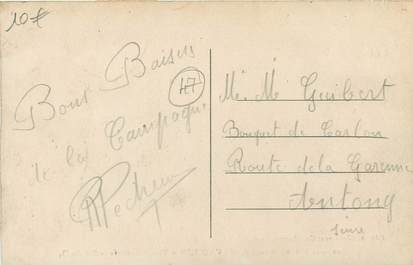 10€
Bons Baisers
de la Campagne
47
M. Mé Guibert
Bouquet de
Route de la Garenne
Antony
Seine